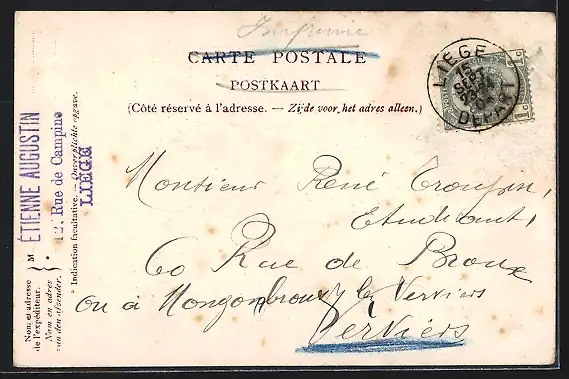 Imprimé
CARTE POSTALE
POSTKAART
(Côté réservé à l'adresse. — Zijde voor het adres alleen.)
LIEGE
15
SEPT
DEPART
Monsieur René
Etudiant,
60 Rue de
ou à lez Verviers
Verviers
Nom et adresse
de l'expéditeur.
Nom en adres
van den afzender.
M
ÉTIENNE AUGUSTIN
12, Rue de Campine
LIÉGE
* Indication facultative. — Onverplichte opgave.